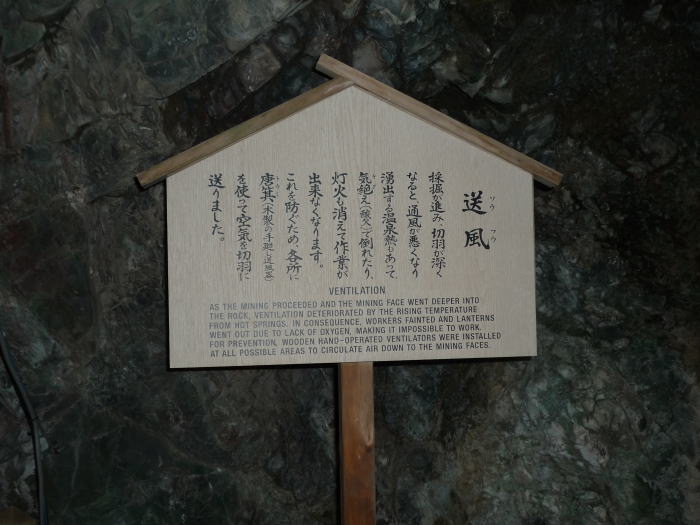 送風
ソウ フウ
採掘が進み、切羽が深く
なると、通風が悪くなり
湧出する温泉熱もあって、
気絶え(酸欠)で倒れたり、
灯火も消えて作業が
出来なくなります。
これを防ぐため、各所に
唐箕、(木製の手廻し送風器)
を使って空気を切羽に
送りました。
VENTILATION
AS THE MINING PROCEEDED AND THE MINING FACE WENT DEEPER INTO
THE ROCK, VENTILATION DETERIORATED BY THE RISING TEMPERATURE
FROM HOT SPRINGS. IN CONSEQUENCE, WORKERS FAINTED AND LANTERNS
WENT OUT DUE TO LACK OF OXYGEN, MAKING IT IMPOSSIBLE TO WORK.
FOR PREVENTION, WOODEN HAND-OPERATED VENTILATORS WERE INSTALLED
AT ALL POSSIBLE AREAS TO CIRCULATE AIR DOWN TO THE MINING FACES.